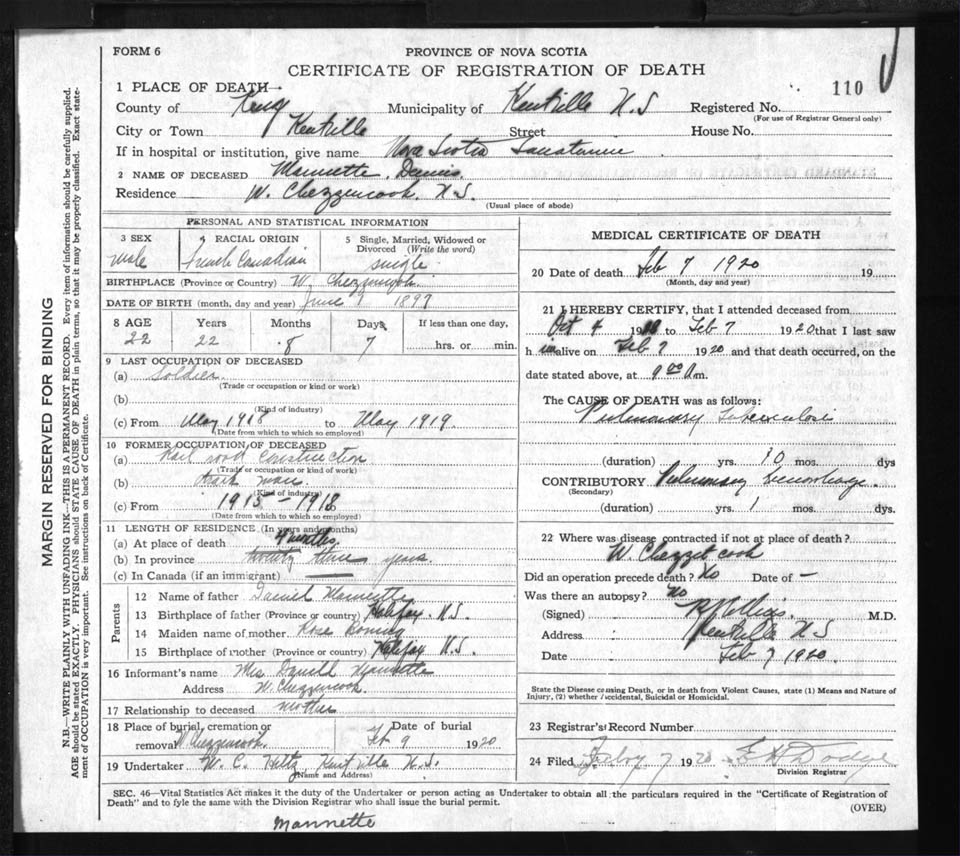 FORM 6
PROVINCE OF NOVA SCOTIA
CERTIFICATE OF REGISTRATION OF DEATH
110
1 PLACE OF DEATH—
County of King Municipality of Kentville N.S Registered No.
(For use of Registrar General only)
City or Town Kentville Street House No.
If in hospital or institution, give name Nova Scotia
2 NAME OF DECEASED Mannette, Dennis.
Residence W. Chezzencook. N.S.
(Usual place of abode)
PERSONAL AND STATISTICAL INFORMATION
3 SEX male
4 RACIAL ORIGIN French Canadian
5 Single, Married, Widowed or Divorced (Write the word) single
BIRTHPLACE (Province or Country) W. Chezzencook.
DATE OF BIRTH (month, day and year) June 1897
8 AGE Years Months Days If less than one day,
22 22 8 7 hrs. or min.
9 LAST OCCUPATION OF DECEASED
(a) Soldier
(Trade or occupation or kind or work)
(b)
(Kind of industry)
(c) From May 1918 to May 1919.
(Date from which to which so employed)
10 FORMER OCCUPATION OF DECEASED
(a) Rail road construction
(Trade or occupation or kind of work)
(b) man.
(Kind of industry)
(c) From 1913 – 1918
(Date from which to which so employed)
11 LENGTH OF RESIDENCE (In years and months)
(a) At place of death 4 months.
(b) In province twenty three years
(c) In Canada (if an immigrant) —
Parents
12 Name of father Daniel Mannette
13 Birthplace of father (Province or country) Halifax. N.S.
14 Maiden name of mother Rose
15 Birthplace of mother (Province or country) Halifax N.S.
16 Informant's name Mrs Daniel Mannette
Address W. Chezzencook.
17 Relationship to deceased mother
18 Place of burial, cremation or Date of burial
removal W. Chezzencook. Feb 9 1920
19 Undertaker W. C. Kentville N.S.
(Name and Address)
MEDICAL CERTIFICATE OF DEATH
20 Date of death Feb 7 1920 19
(Month, day and year)
21 I HEREBY CERTIFY, that I attended deceased from
Oct 4 19 to Feb 7 1920 that I last saw
him alive on Feb 7 1920 and that death occurred, on the
date stated above, at 9 00 A m.
The CAUSE OF DEATH was as follows:
Pulmonary Tuberculosis
(duration) yrs. 10 mos. dys
CONTRIBUTORY Pulmonary Hemorrhage.
(Secondary)
(duration) yrs. 1 mos. dys.
22 Where was disease contracted if not at place of death?
W. Chezzetcook
Did an operation precede death? No Date of –
Was there an autopsy? No
(Signed) M.D.
Address Kentville N S
Date Feb 7 1920.
State the Disease causing Death, or in death from Violent Causes, state (1) Means and Nature of
Injury, (2) whether Accidental, Suicidal or Homicidal.
23 Registrar's Record Number
24 Filed Febry 7 1920 Dodge
Division Registrar
SEC. 46—Vital Statistics Act makes it the duty of the Undertaker or person acting as Undertaker to obtain all the particulars required in the "Certificate of Registration of
Death" and to fyle the same with the Division Registrar who shall issue the burial permit.
(OVER)
Mannette
MARGIN RESERVED FOR BINDING
N.B.—WRITE PLAINLY WITH UNFADING INK—THIS IS A PERMANENT RECORD. Every item of information should be carefully supplied.
AGE should be stated EXACTLY. PHYSICIANS should STATE CAUSE OF DEATH in plain terms, so that it may be properly classified. Exact state-
ment of OCCUPATION is very important. See instructions on back of Certificate.